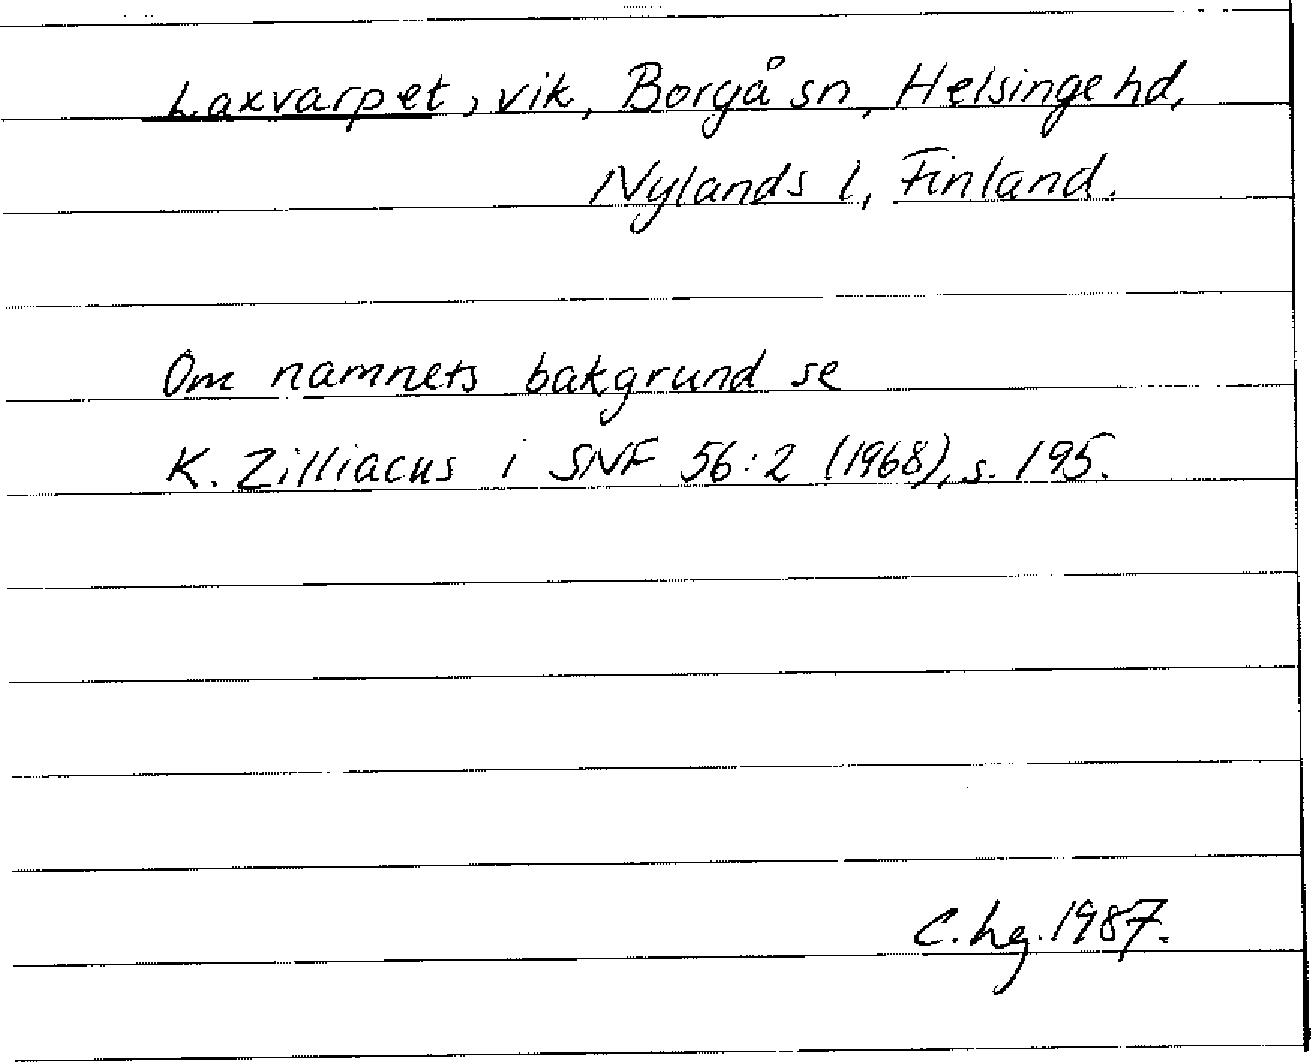 Laxvarpet, vik, Borgå sn, Helsinge hd,
Nylands l, Finland.
Om namnets bakgrund se
K. Zilliacus i SNF 56:2 (1968), s. 195.
C. hg. 1987.